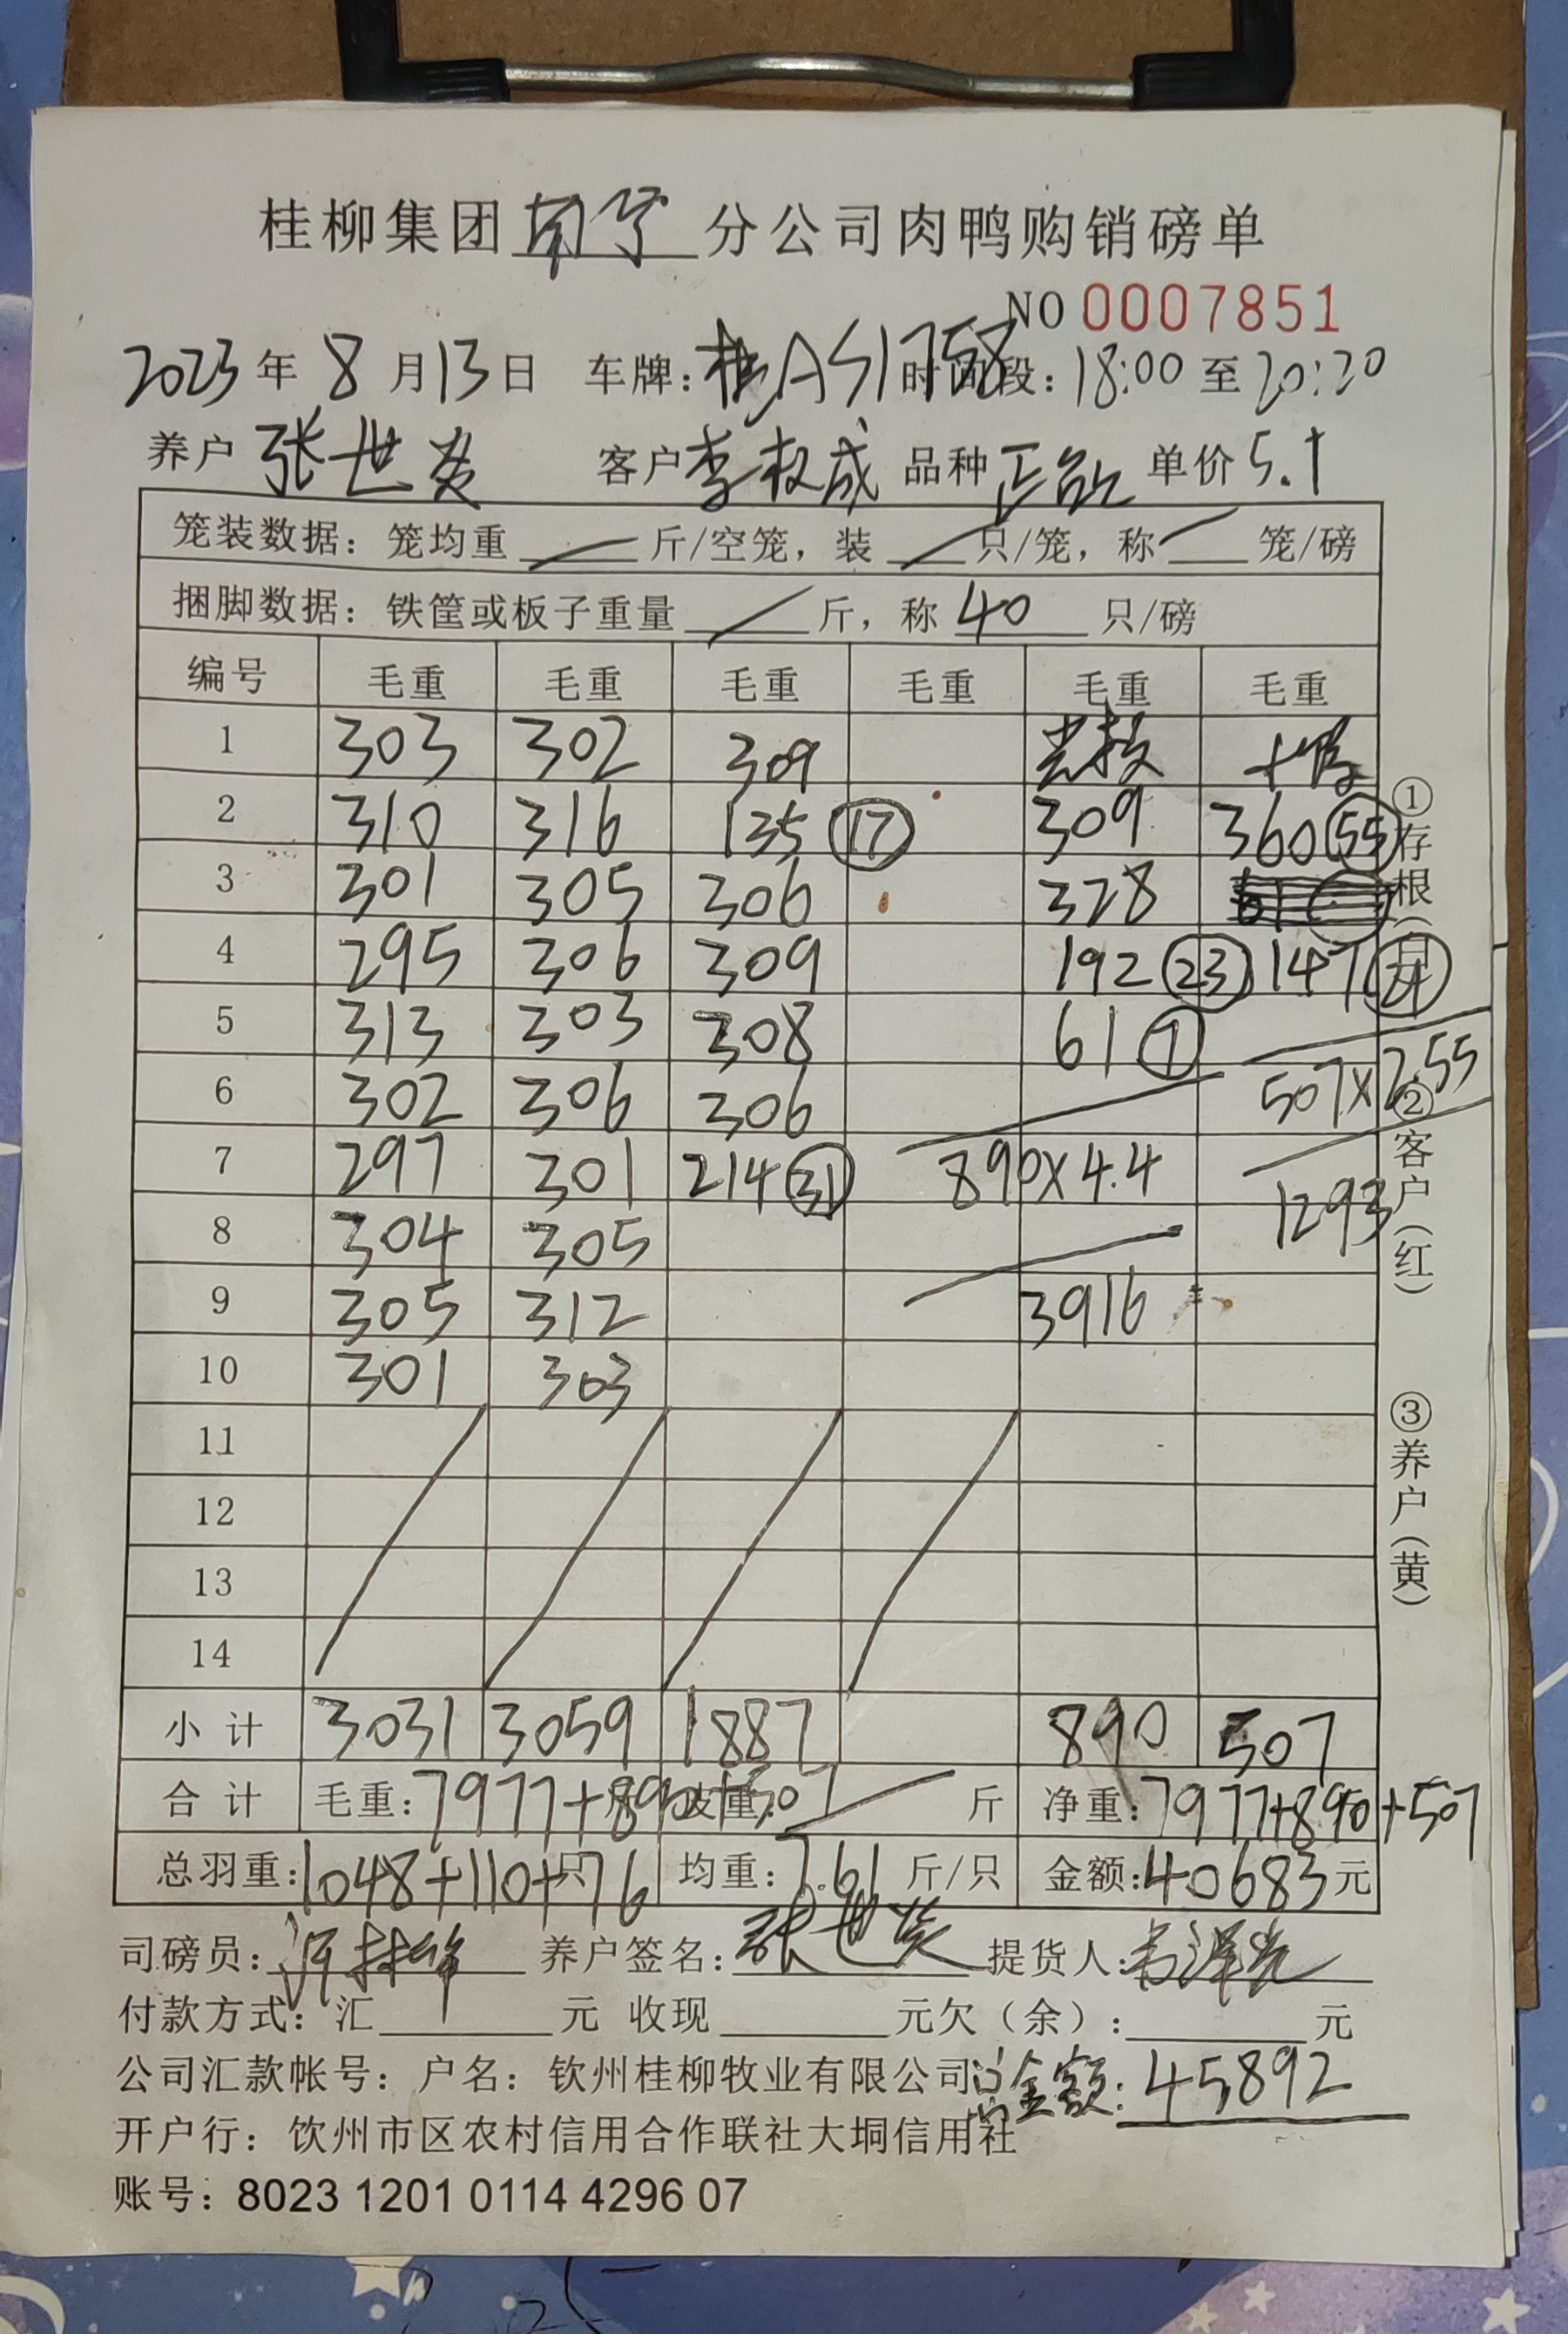 桂柳集团南宁分公司肉鸭购销磅单
NO 0007851
2023年8月13日 车牌:桂AS1758 时间段:18:00至20:20
养户 张世炎 客户李权成 品种 单价5.1
笼装数据:笼均重 斤/空笼,装 只/笼,称 笼/磅
捆脚数据:铁筐或板子重量 斤,称 40 只/磅
编号 毛重 毛重 毛重 毛重 毛重 毛重
1 303 302 309
2 310 316 135 17 309 360 55
3 301 305 306 328
4 295 306 309 192 23 147 21
5 313 303 308 61 7
6 302 306 306 507×2.55
7 297 301 214 31 890×4.4 1293
8 304 305
9 305 312 3916
10 301 303
11
12
13
14
小计 3031 3059 1887 890 507
合计 毛重:7977+890+507 皮重: 斤 净重:7977+890+507
总羽重:1048+110+76 只 均重:7.61 斤/只 金额:40683元
司磅员: 养户签名:张世炎 提货人:
付款方式:汇 元 收现 元欠(余): 元
公司汇款帐号:户名:钦州桂柳牧业有限公司 总金额:45892
开户行:饮州市区农村信用合作联社大垌信用社
账号:8023 1201 0114 4296 07
①存根(白) ②客户(红) ③养户(黄)